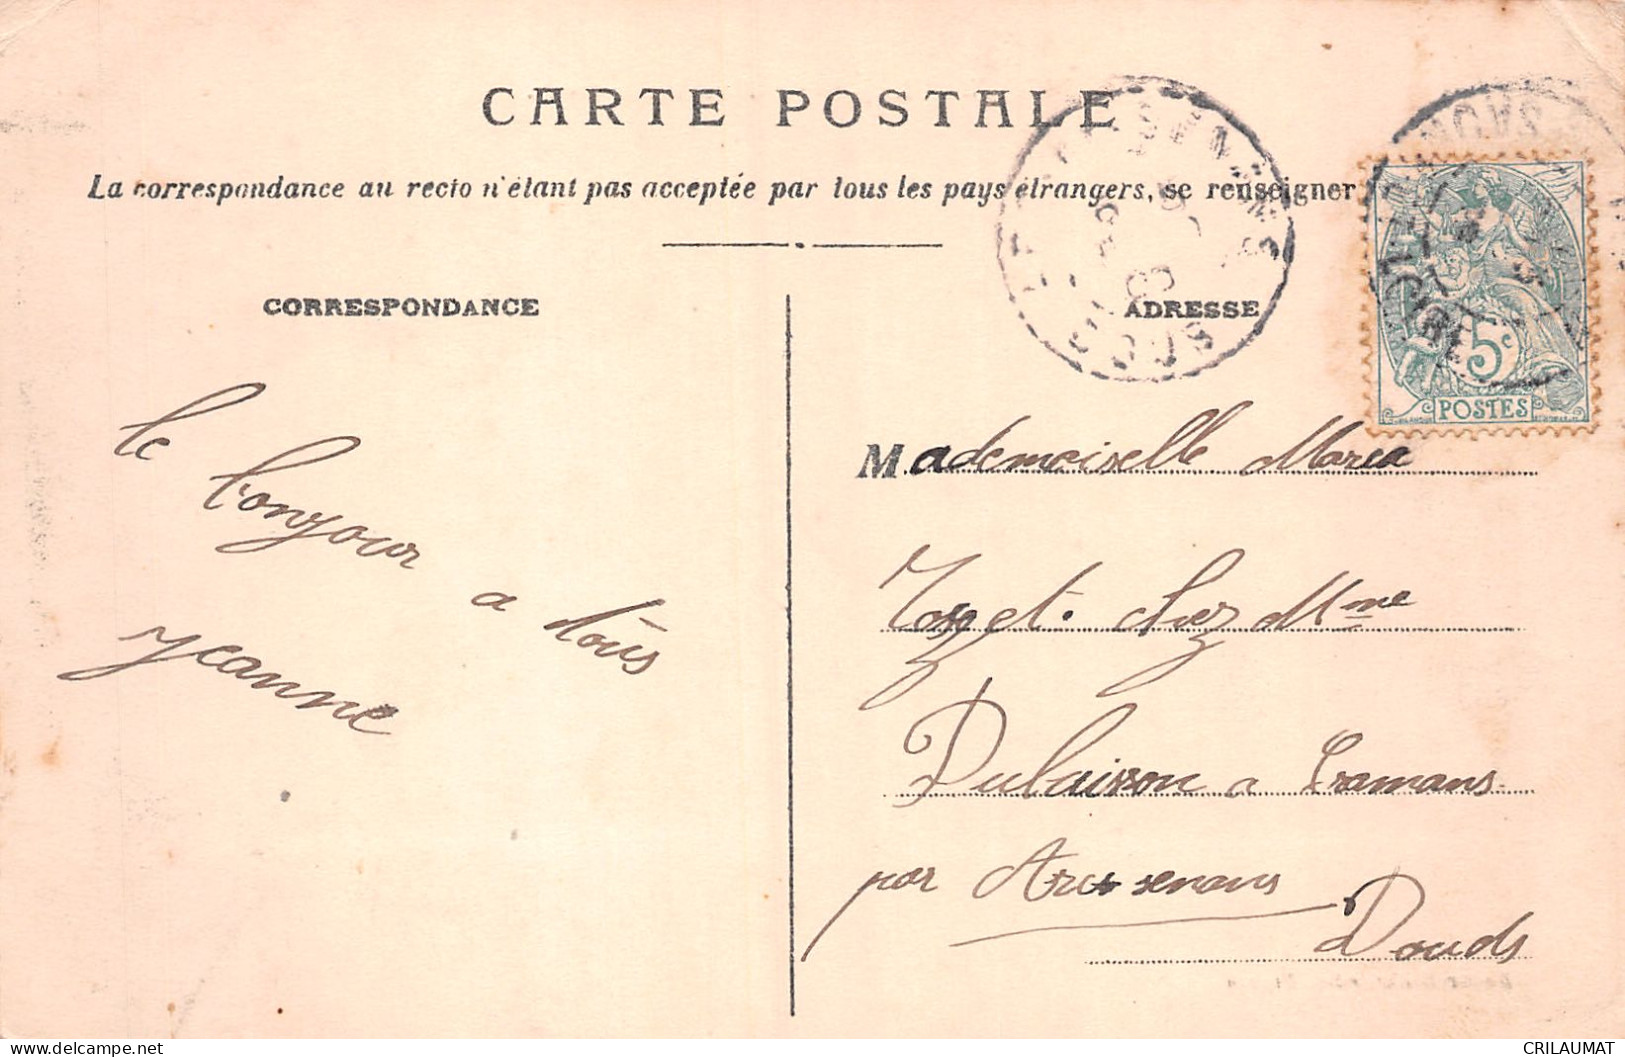 CARTE POSTALE
La correspondance au recto n'étant pas acceptée par tous les pays étrangers, se renseigner
CORRESPONDANCE
ADRESSE
5c
POSTES
le
bonjour
a tous
Jeanne
Mademoiselle Maria
chez Mme
a Cramans
par Arc-senans
Doubs
DOUBS
www.delcampe.net
CRILAUMAT